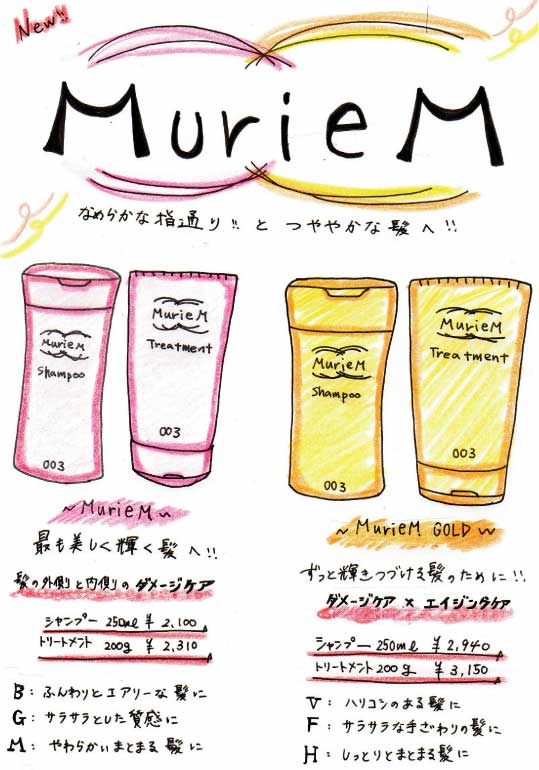 New!!
MurieM
なめらかな指通り!! と つややかな髪へ!!
MurieM
Shampoo
003
MurieM
Treatment
003
MurieM
Shampoo
003
MurieM
Treatment
003
~MurieM~
最も美しく輝く髪へ!!
髪の外側と内側のダメージケア
シャンプー 250ml ¥ 2,100
トリートメント 200g ¥ 2,310
B: ふんわりとエアリーな髪に
G: サラサラとした質感に
M: やわらかいまとまる髪に
~MurieM GOLD~
ずっと輝きつづける髪のために!!
ダメージケア × エイジングケア
シャンプー 250ml ¥ 2,940
トリートメント 200g ¥ 3,150
V: ハリコシのある髪に
F: サラサラな手ざわりの髪に
H: しっとりとまとまる髪に